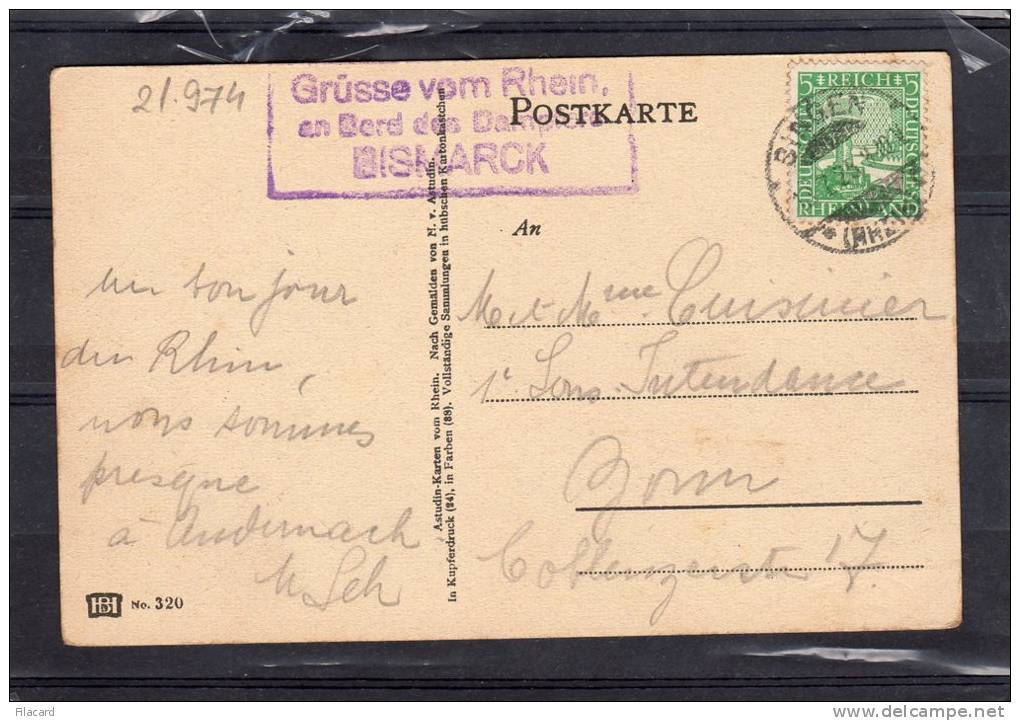 21.974
Grüsse vom Rhein,
an Bord des Dampfers
BISMARCK
POSTKARTE
5 REICH 5
DEUTSCHES
RHEINLAND
BINGEN
An
un bonjour
du Rhin,
nous sommes
presque
à Andernach
M et Mme Cuisinier
Intendance
Bonn
Coblenzerstr 17.
Astudin-Karten vom Rhein. Nach Gemälden von N. v. Astudin.
In Kupferdruck (24), in Farben (89). Vollständige Sammlungen in hübschen Kartonkästchen
HB
No. 320
Filacard
www.delcampe.net